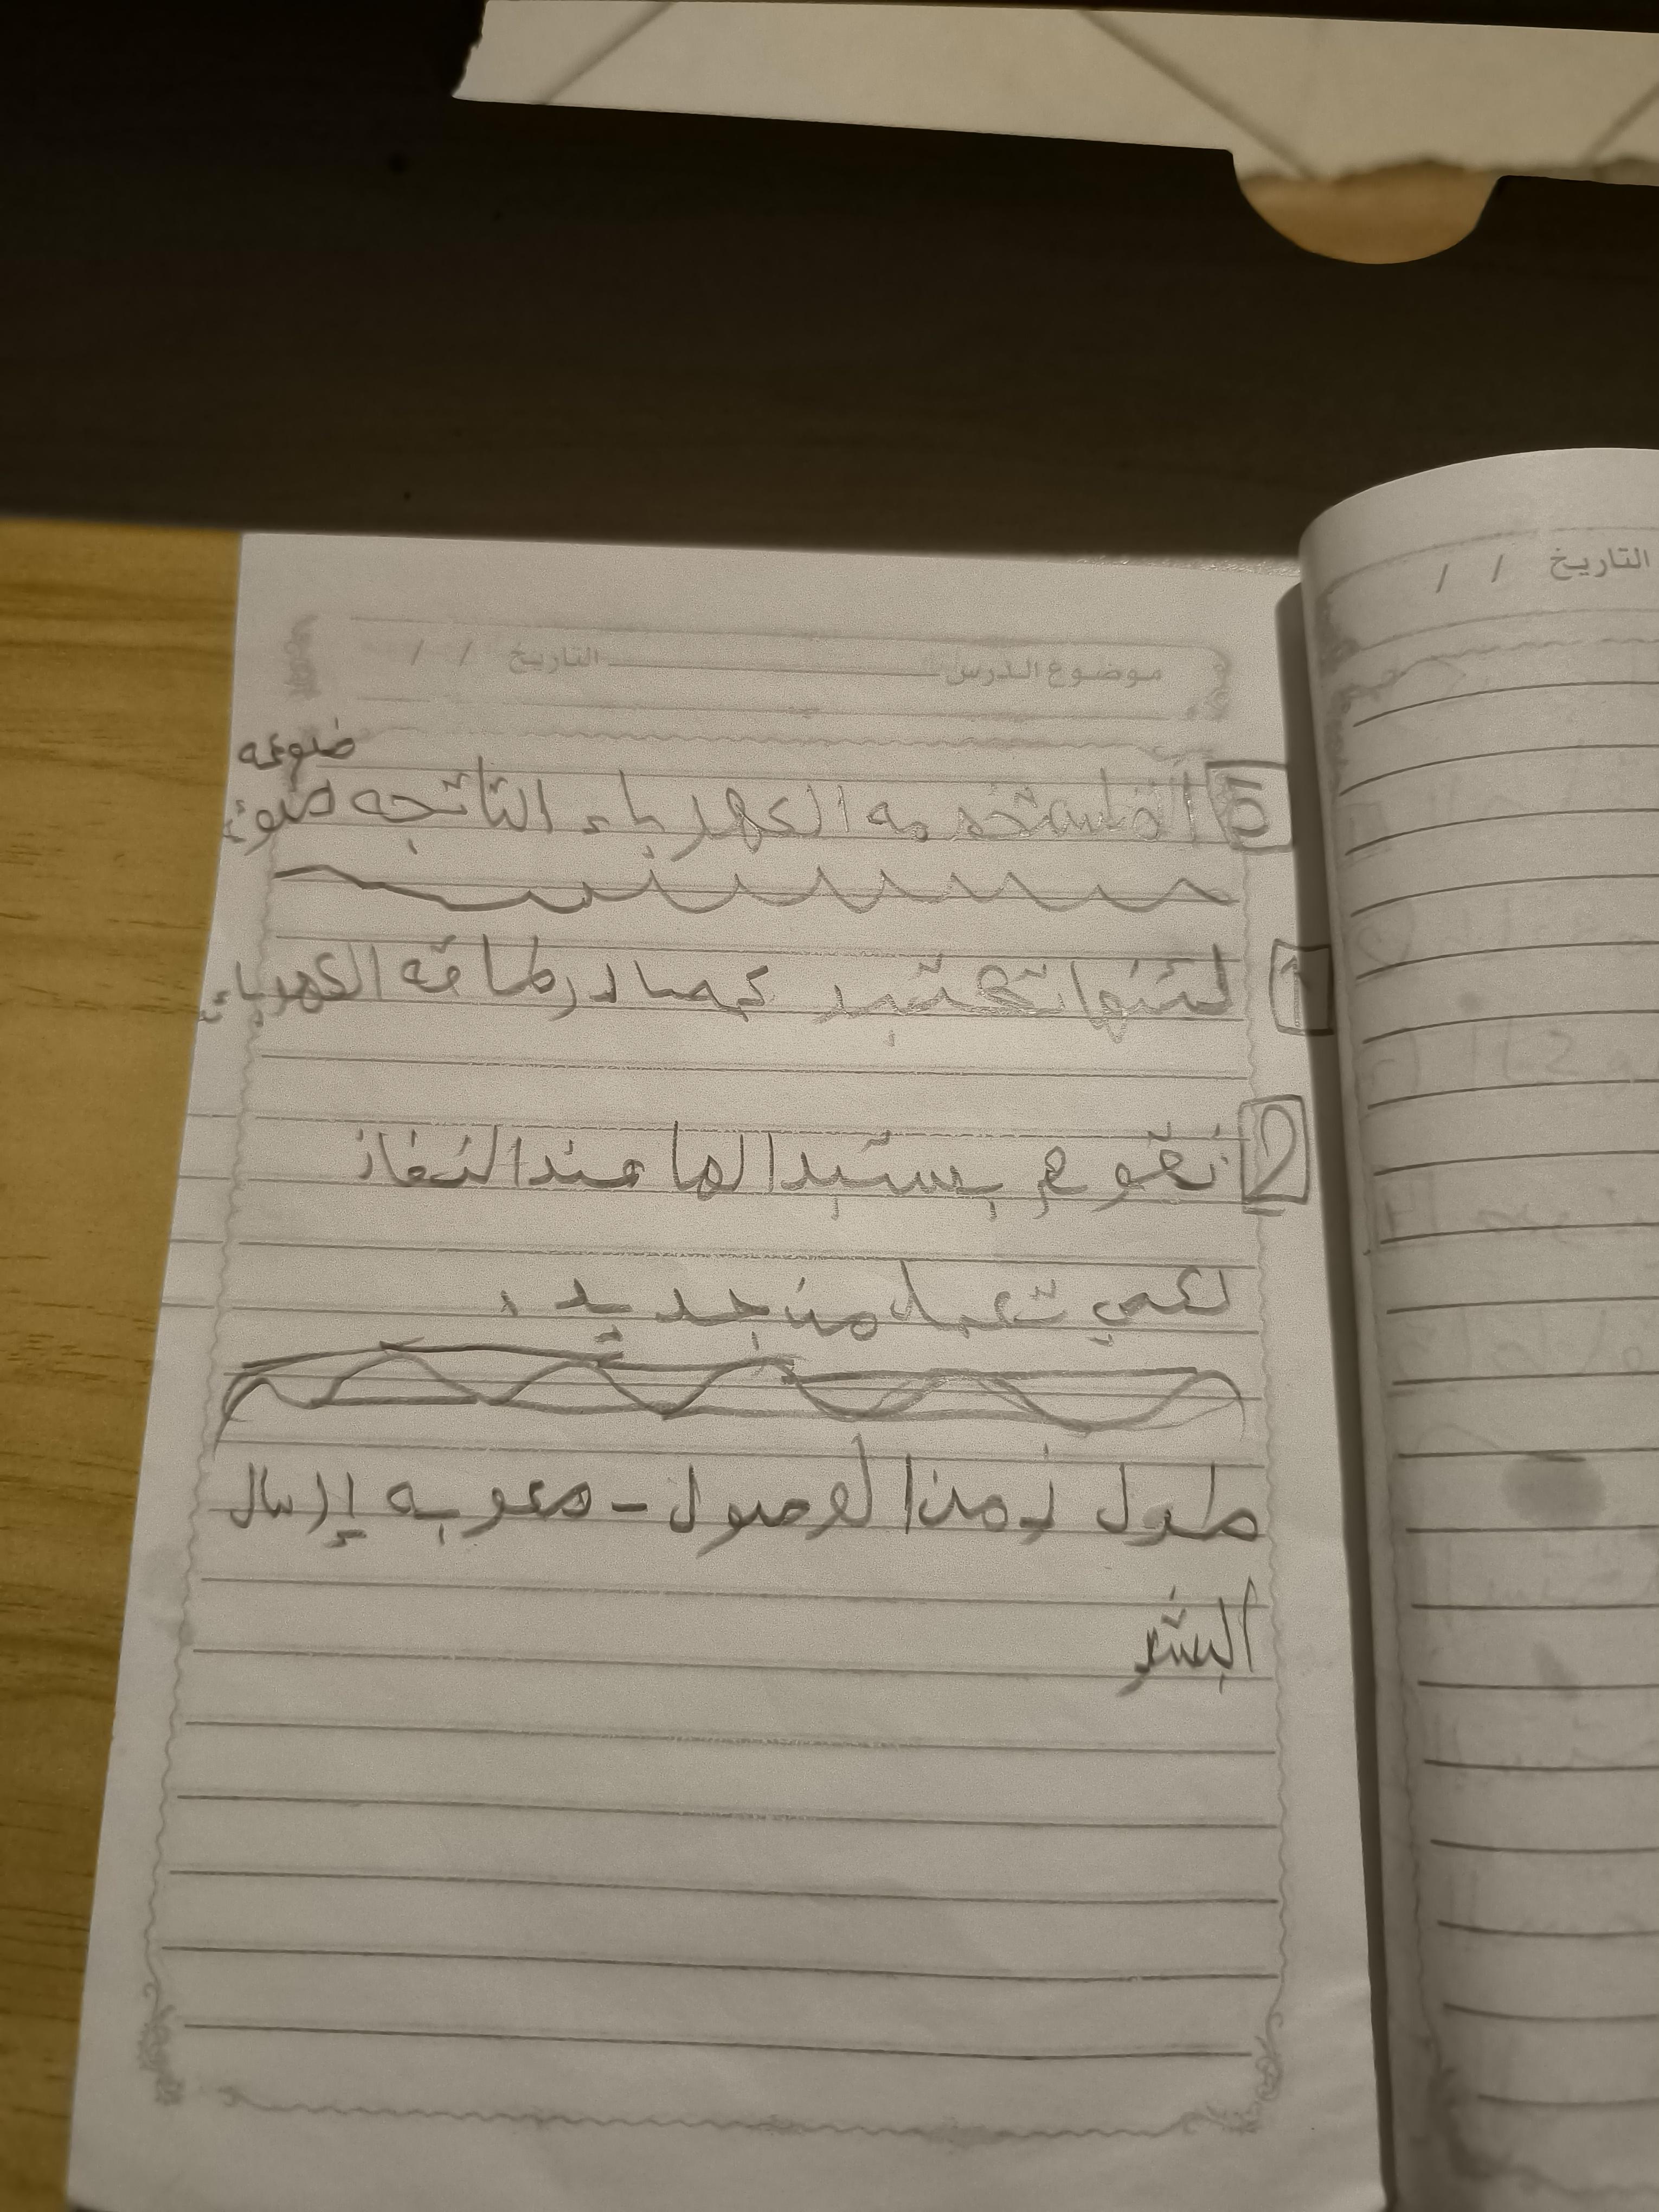 موضوع الدرس التاريخ / /
التاريخ / /
ضوعه
5 المستخدمه الكهرباء الناتجه ضوئ
1 لئنها تختبر كمصادر طاقه الكهرباء
2 نقوم بستبدالها عند النفاذ
لكي تعمل من جديد.
طول زمن الوصول - صعوبه إرسال
البشر